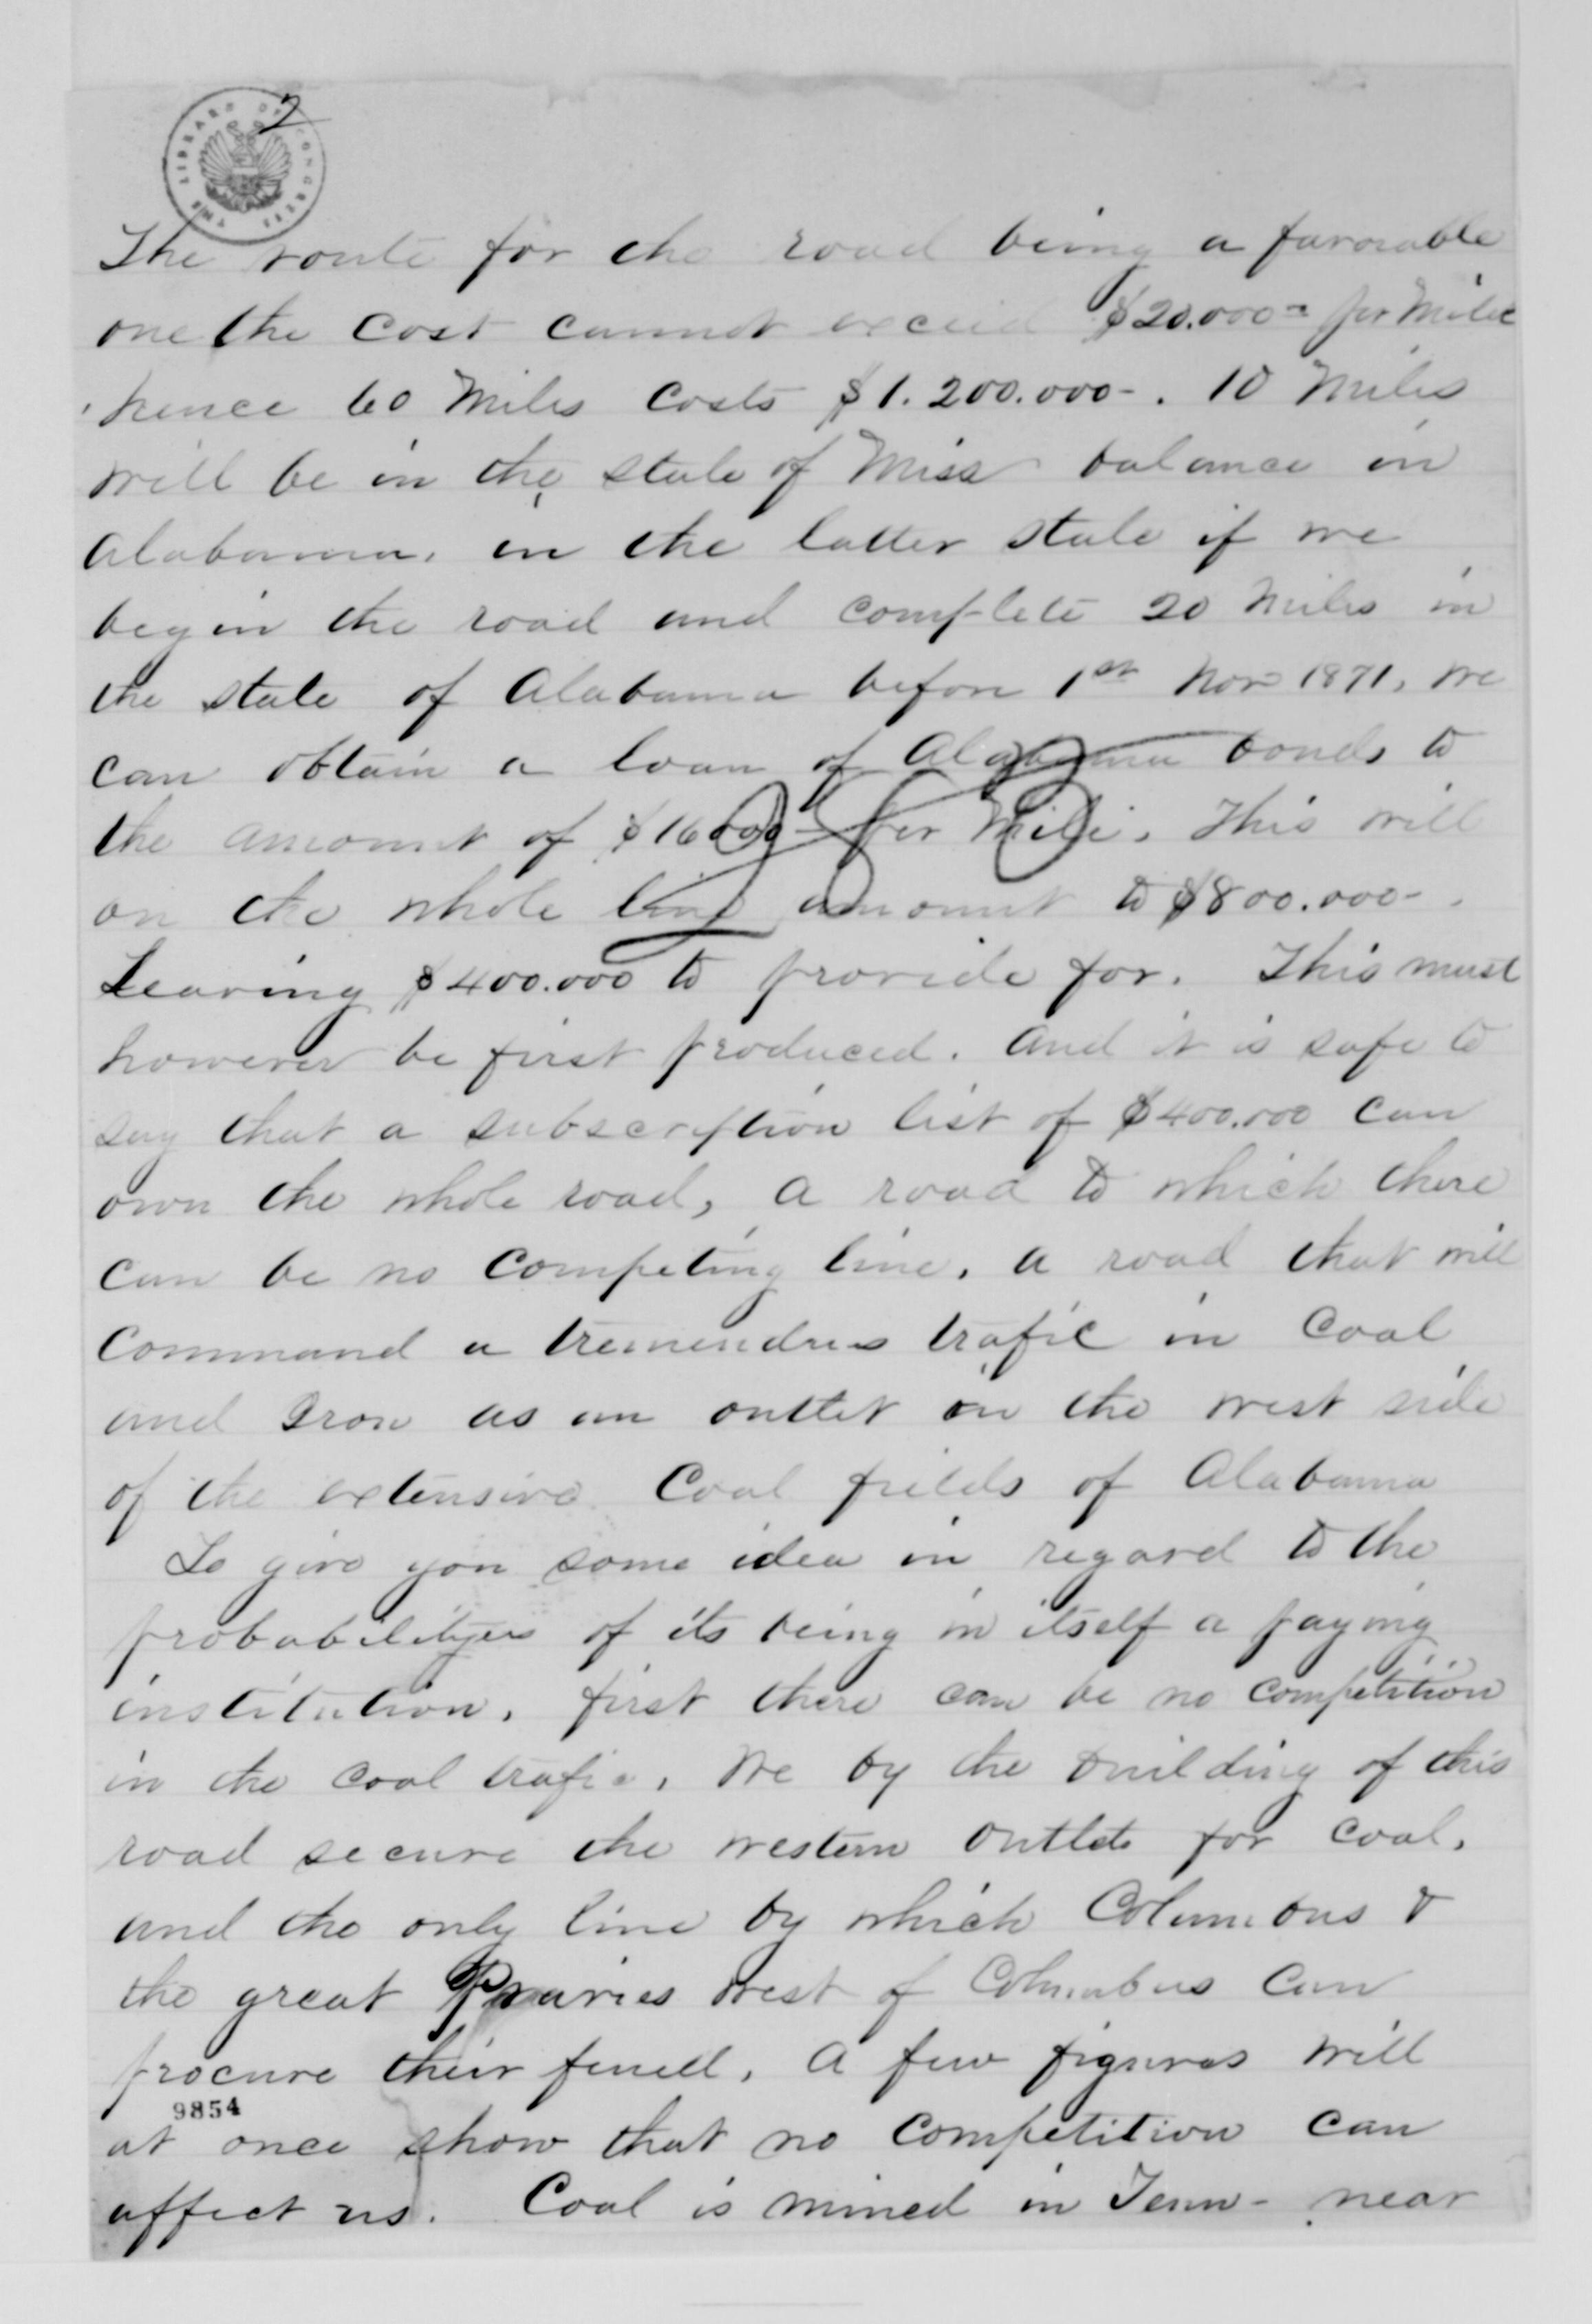 2
THE LIBRARY OF CONGRESS
The route for the road being a favorable
one the cost cannot exceed $20.000= per Mile
hence 60 Miles Costs $1.200.000-. 10 Miles
will be in the state of Miss balance in
Alabama. in the latter state if we
begin the road and complete 20 Miles in
the state of Alabama before 1st Nov 1871, we
can obtain a loan of Alabama bonds to
the amount of $16000- per Mile. This will
on the whole line amount to $800.000-.
Leaving $400.000 to provide for. This must
however be first produced. And it is safe to
say that a subscription list of $400.000 can
own the whole road, a road to which there
can be no Competing line. a road that will
Command a tremendous trafic in Coal
and Iron as an outlet on the west side
of the extensive Coal fields of Alabama
To give you some idea in regard to the
probabilityes of its being in itself a paying
institution. first there can be no competition
in the coal trafic. We by the building of this
road secure the western outlets for coal.
and the only line by which Columbus &
the great Prairies West of Columbus Can
procure their fuell. A few figures will
9854
at once show that no Competition can
affect us. Coal is mined in Tenn- near